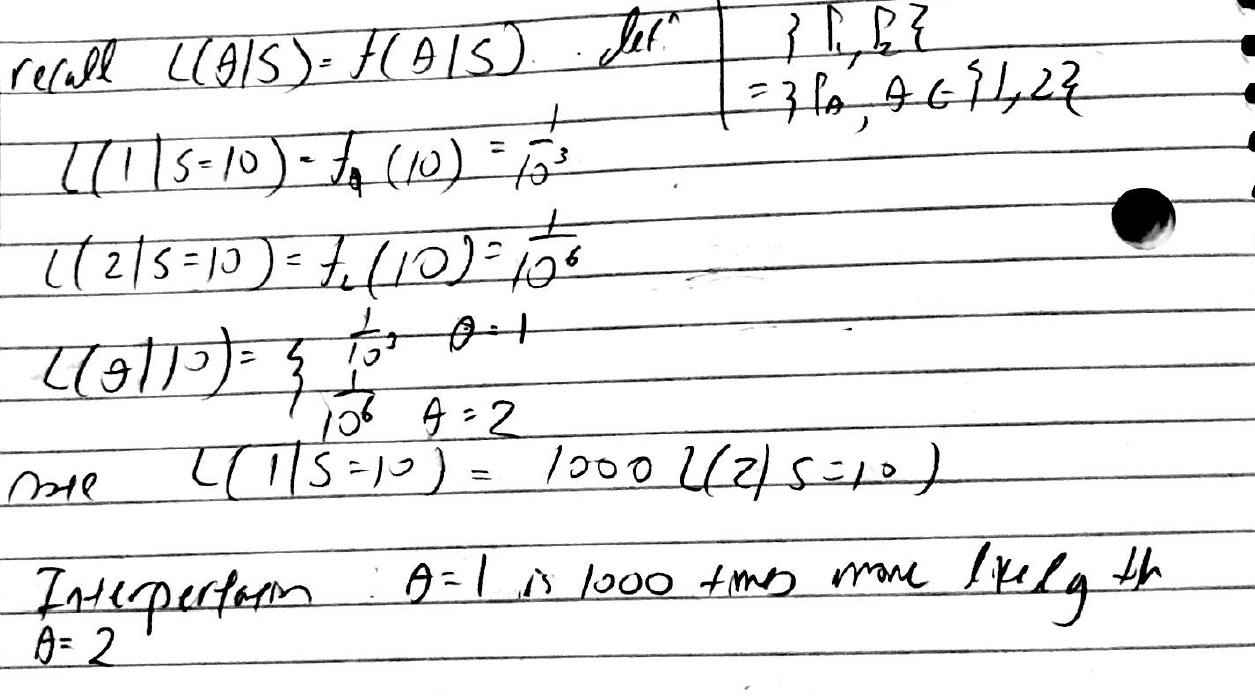 recall L(θ|S) = f(θ|S). let
{P₁, P₂}
= {Pθ, θ ∈ {1, 2}
L(1|S=10) = fθ(10) = 1/10³
L(2|S=10) = f₂(10) = 1/10⁶
L(θ|10) = { 1/10³ θ=1
1/10⁶ θ=2
note L(1|S=10) = 1000 L(2|S=10)
θ=1 is 1000 times more likely th
θ=2